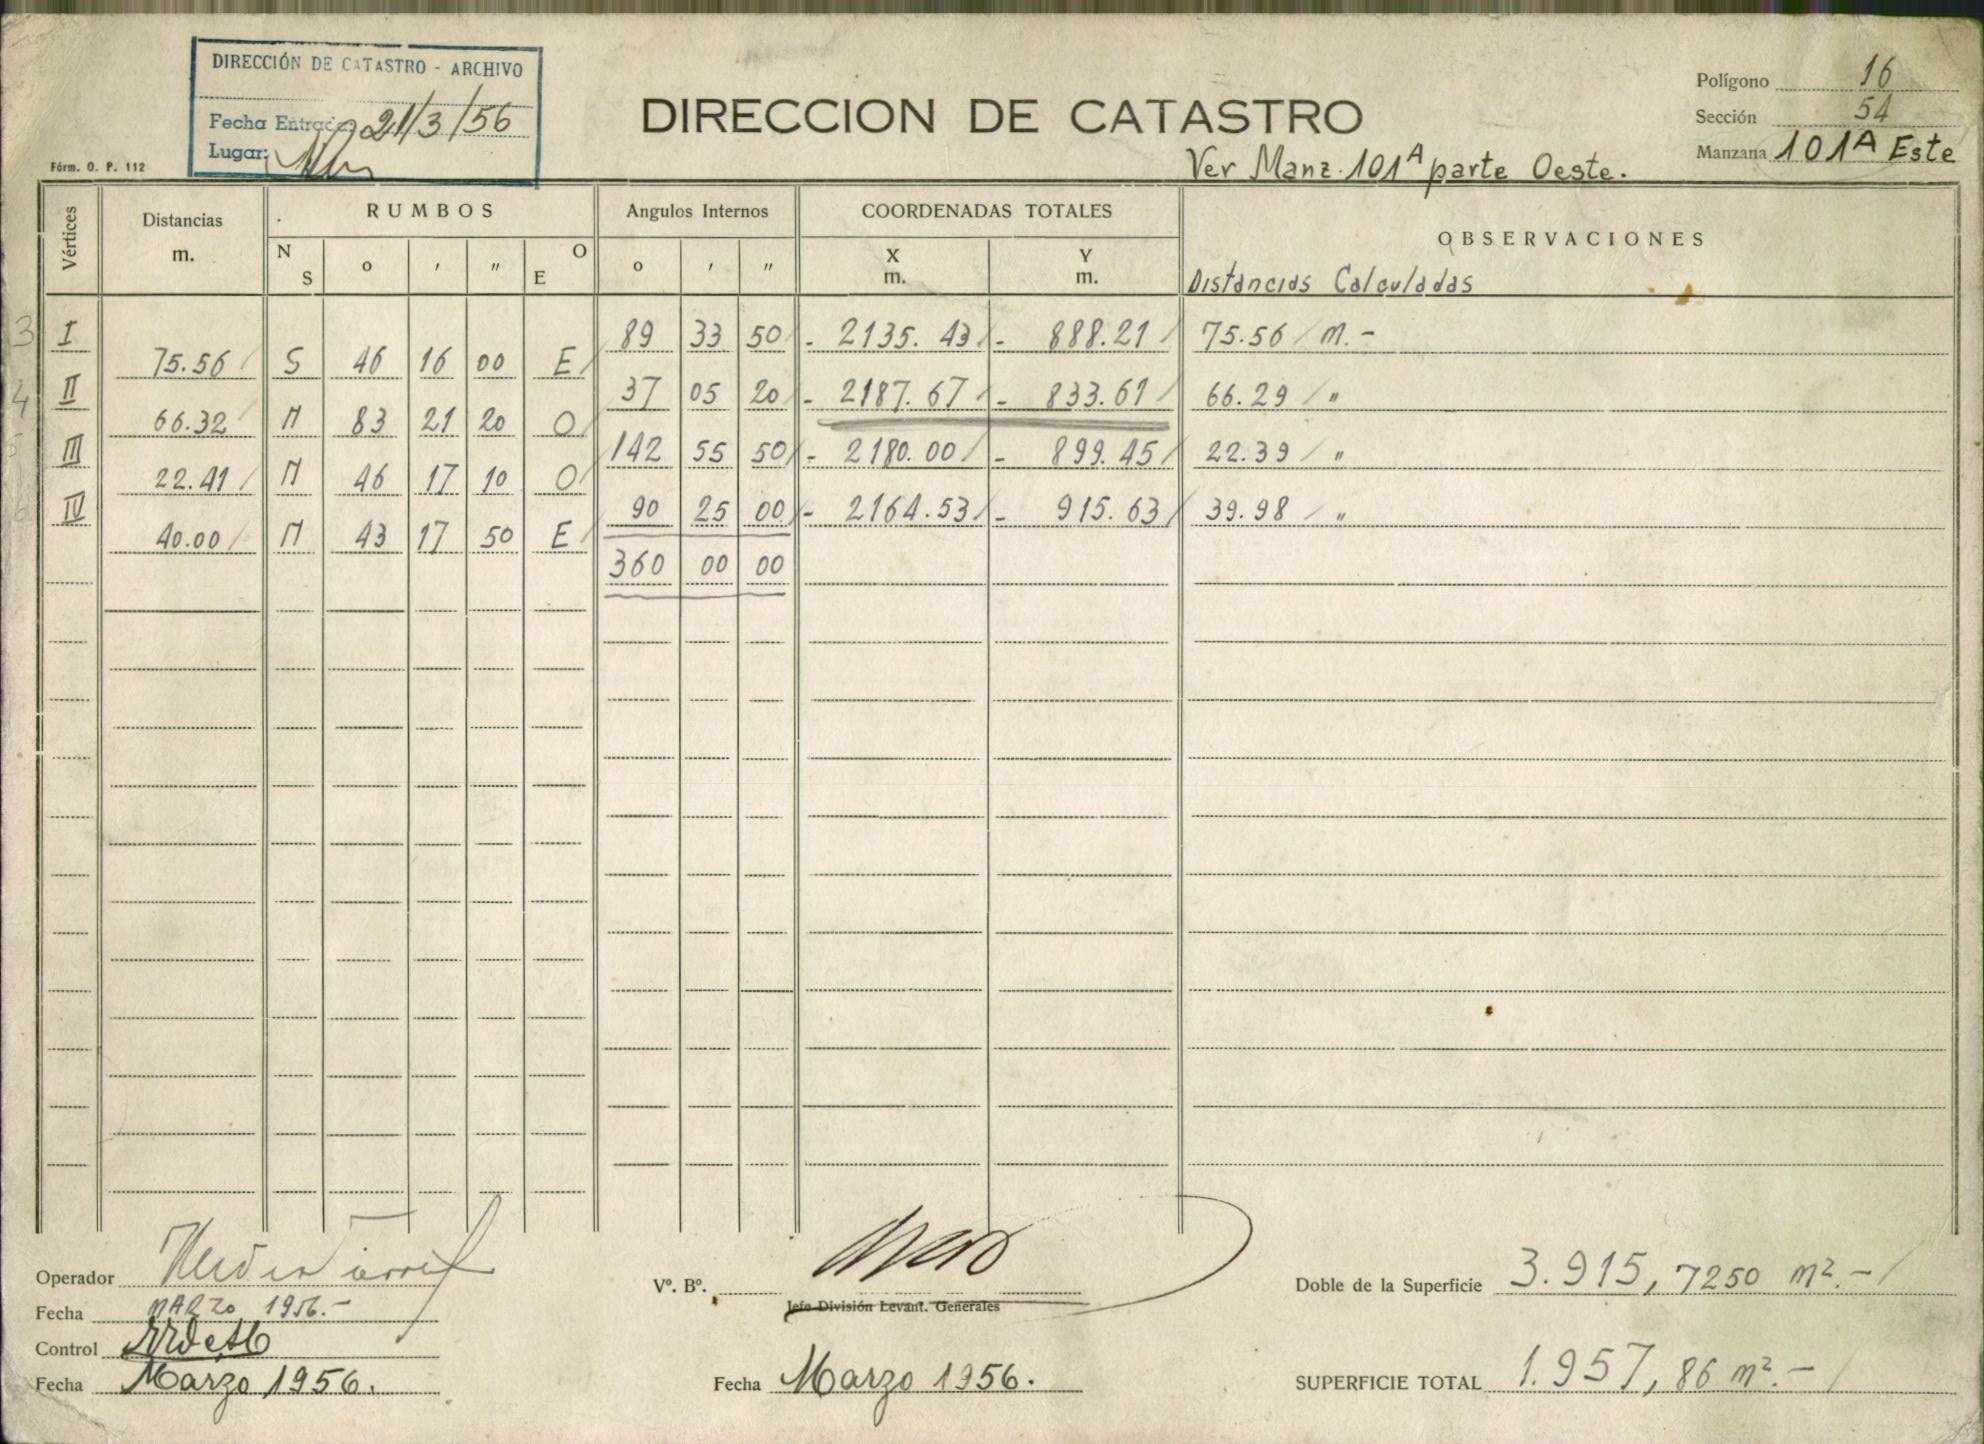 DIRECCIÓN DE CATASTRO - ARCHIVO
Fecha Entrada 21/3/56
Lugar:
Fórm. O. P. 112
DIRECCION DE CATASTRO
Ver Manz. 101A parte Oeste.
Polígono 16
Sección 54
Manzana 101A Este
Vértices Distancias m. RUMBOS Angulos Internos COORDENADAS TOTALES OBSERVACIONES
N S o ' " O E o ' " X m. Y m.
Distancias Calculadas
3 I 89 33 50 - 2135.43 - 888.21 75.56 m.-
75.56 S 46 16 00 E
4 II 37 05 20 - 2187.67 - 833.61 66.29 "
66.32 N 83 21 20 O
5 III 142 55 50 - 2180.00 - 899.45 22.39 "
22.41 N 46 17 10 O
6 IV 90 25 00 - 2164.53 - 915.63 39.98 "
40.00 N 43 17 50 E
360 00 00
Operador
Fecha MARZO 1956.-
Control
Fecha Marzo 1956.
Vº. Bº.
Jefe División Levant. Generales
Fecha Marzo 1956.
Doble de la Superficie 3.915,7250 m².-
SUPERFICIE TOTAL 1.957,86 m².-